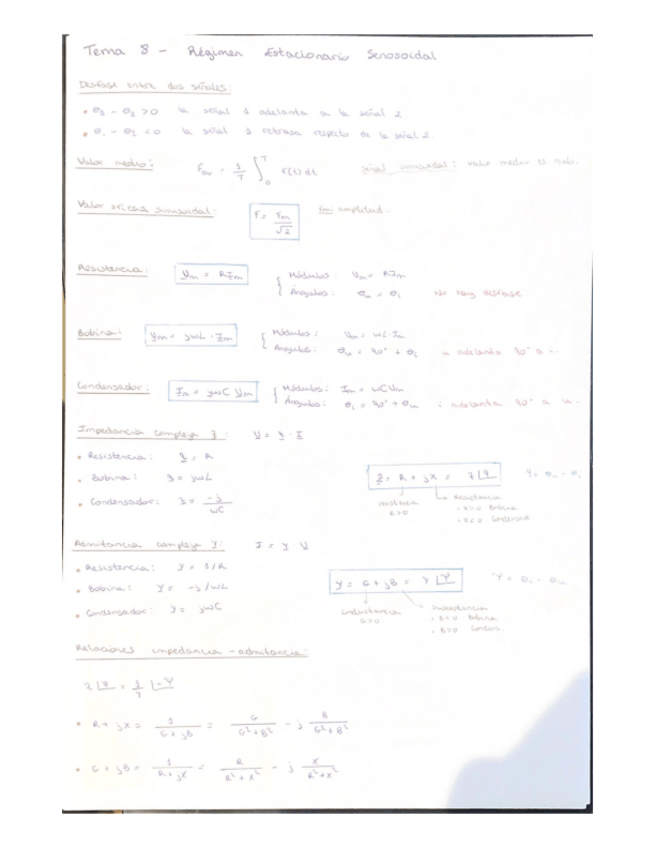 Tema 8 - Régimen Estacionario Senosoidal
Desfase entre dos señales:
• θ1 - θ2 > 0 la señal 1 adelanta a la señal 2
• θ1 - θ2 < 0 la señal 1 retrasa respecto de la señal 2.
Valor medio: Fav = 1/T ∫₀ᵀ f(t) dt señal senosoidal: valor medio es nulo.
Valor eficaz senosoidal: F = Fm/√2 Fm: amplitud.
Resistencia: Um = R Im { Módulos: Um = R Im
Ángulos: θu = θi No hay desfase
Bobina: Um = jωL · Im { Módulos: Um = ωL · Im
Ángulos: θu = 90° + θi u adelanta 90° a i.
Condensador: Im = jωC Um { Módulos: Im = ωC Um
Ángulos: θi = 90° + θu i adelanta 90° a u.
Impedancia compleja Z: U = Z · I
• Resistencia: Z = R
• Bobina: Z = jωL
• Condensador: Z = -j/ωC
Z = R + jX = Z∠φ φ = θu - θi
resistencia R>0
Reactancia
• X>0 Bobina
• X<0 Condensad
Admitancia compleja Y: I = Y U
• Resistencia: Y = 1/R
• Bobina: Y = -j/ωL
• Condensador: Y = jωC
Y = G + jB = Y∠Ψ Ψ = θi - θu
Conductancia G>0
Susceptancia
• B<0 Bobina
• B>0 Condens
Relaciones impedancia - admitancia:
Z∠φ = 1/Y ∠-Ψ
• R + jX = 1/(G + jB) = G/(G² + B²) - j B/(G² + B²)
• G + jB = 1/(R + jX) = R/(R² + X²) - j X/(R² + X²)